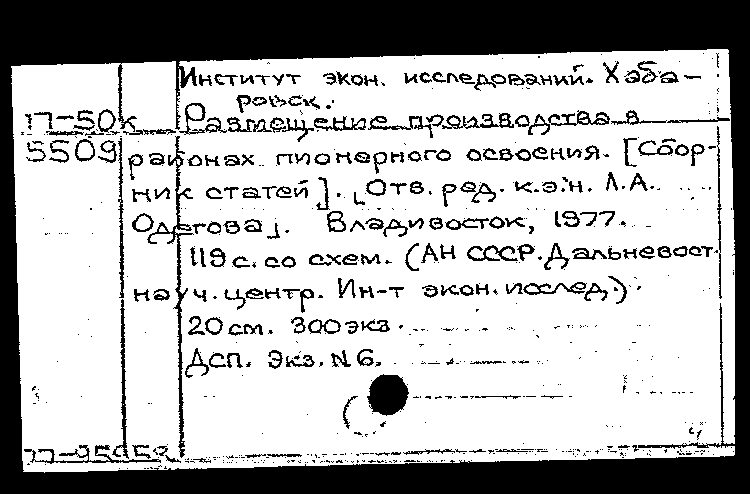 Институт экон. исследований. Хаба-
ровск.
П-50к Размещение производства в
5509 районах пионерного освоения. [Сбор-
ник статей]. [Отв. ред. к.э.н. Л.А.
Одегова]. Владивосток, 1977.
119 с. со схем. (АН СССР. Дальневост.
науч. центр. Ин-т экон. исслед.).
20 см. 300 экз.
Дсп. Экз. N 6.
77-95958